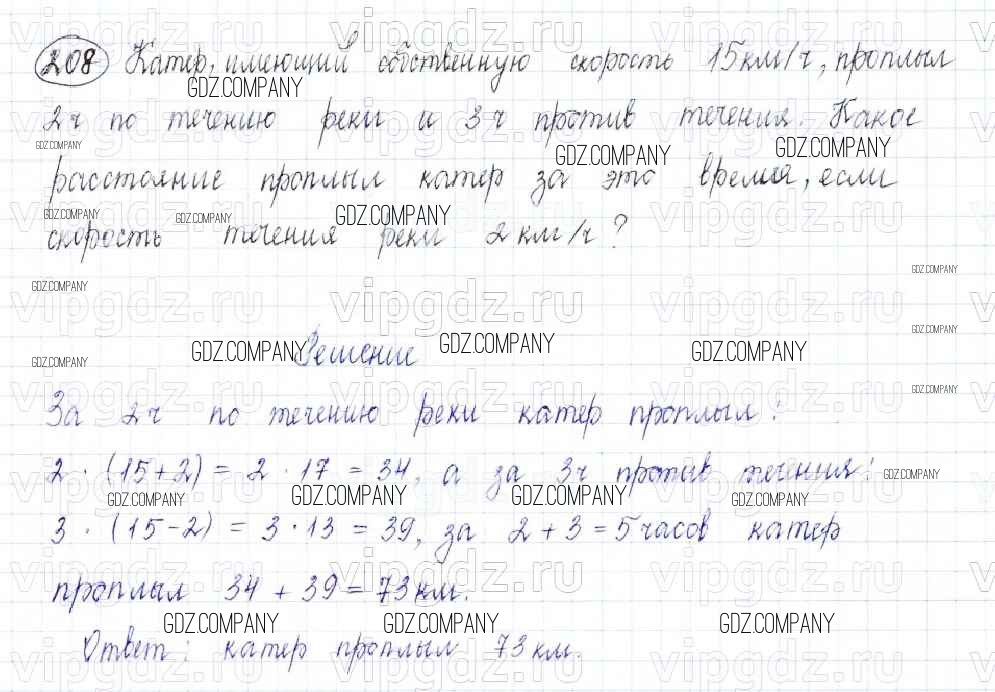 208 Катер, имеющий собственную скорость 15км/ч, проплыл
2ч по течению реки и 3ч против течения. Какое
расстояние проплыл катер за это время, если
скорость течения реки 2км/ч?
Решение
За 2ч по течению реки катер проплыл:
2 · (15+2) = 2 · 17 = 34, а за 3ч против течения:
3 · (15-2) = 3 · 13 = 39, за 2+3=5часов катер
проплыл 34 + 39 = 73км.
Ответ: катер проплыл 73км.
GDZ.COMPANY
vipgdz.ru